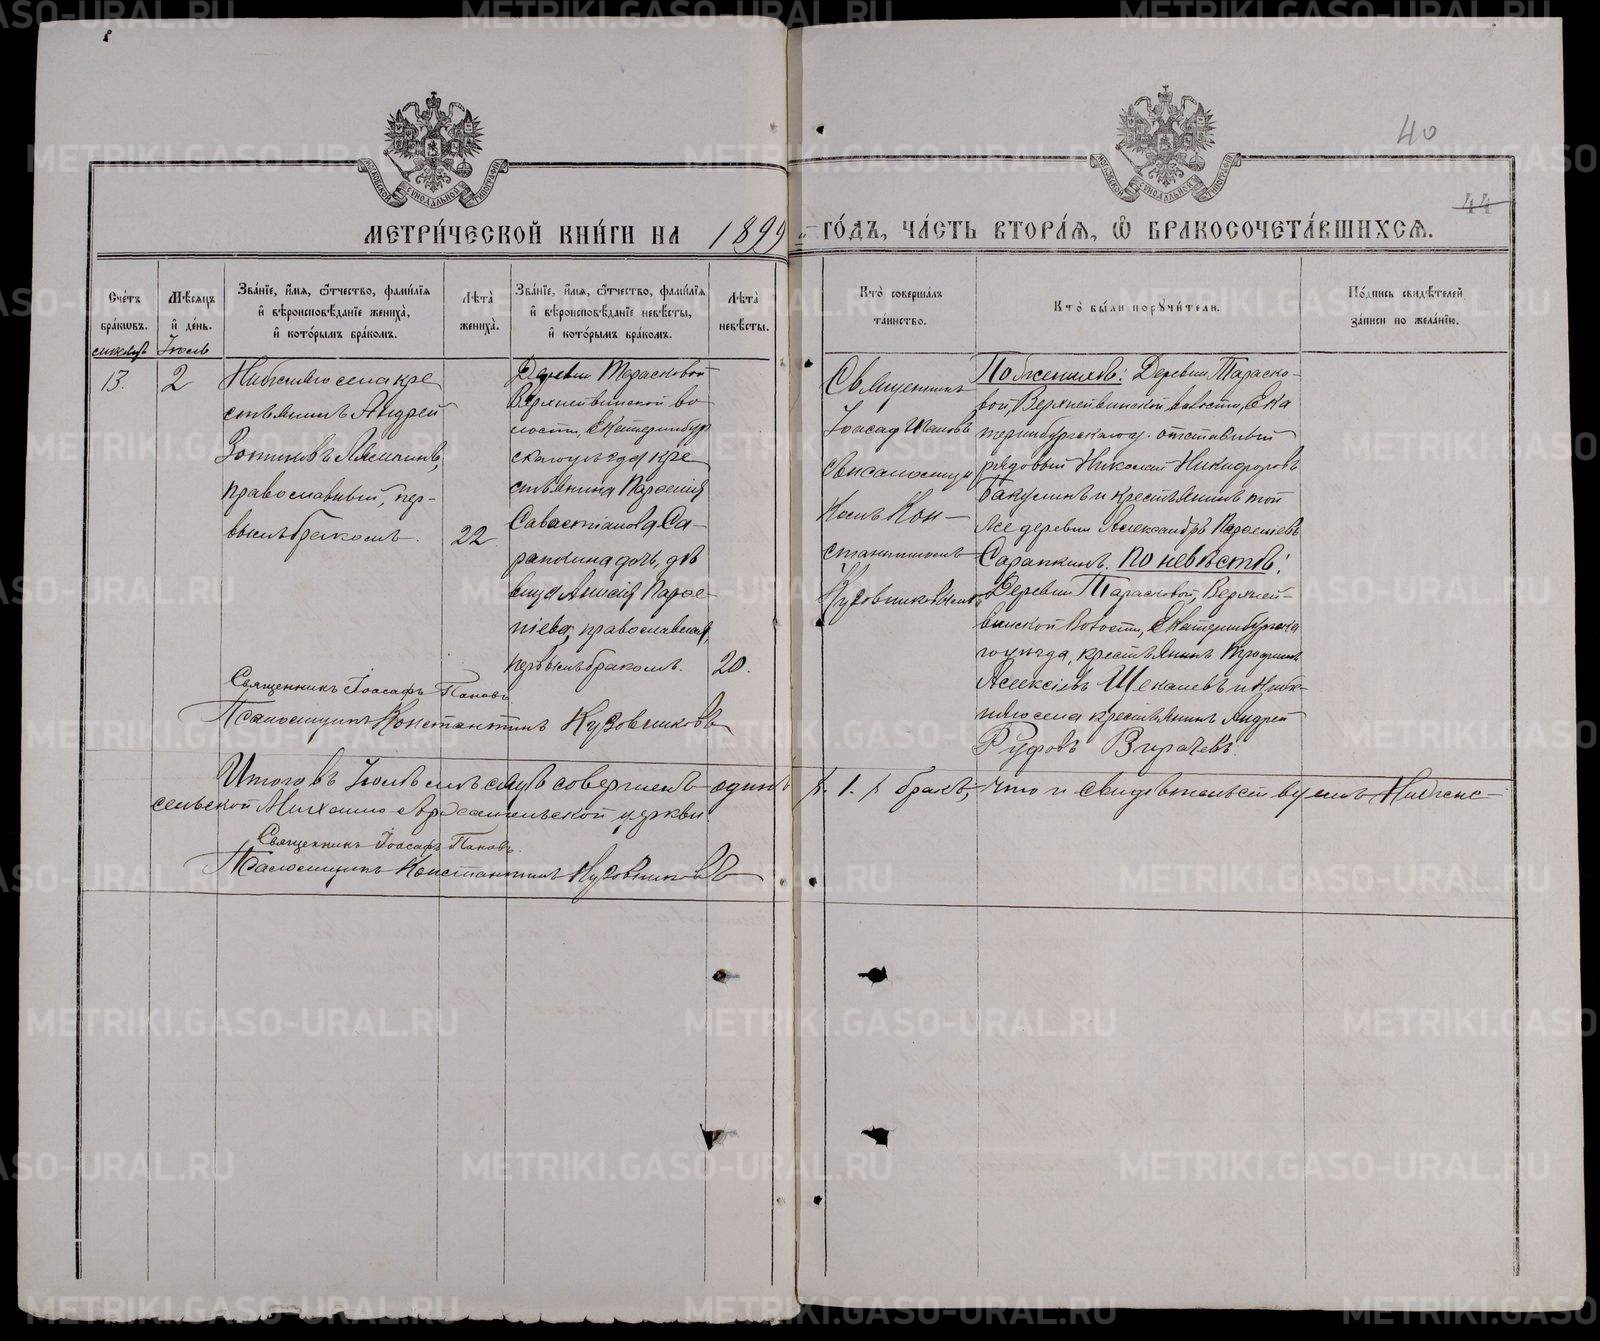 40
44
МЕТРИ́ЧЕСКОЙ КНИ́ГИ НА 1899 ГО́ДЪ, ЧА́СТЬ ВТОРА́Я, Ѿ БРАКОСОЧЕТА́ВШИХСЯ.
Сче́тъ бра́ковъ.
Мѣ́сяцъ и де́нь.
Зва́нїе, и́мя, ѻ́тчество, фами́лїя и вѣроисповѣ́данїе жениха̀, и кото́рымъ бра́комъ.
Лѣ́та жениха̀.
Зва́нїе, и́мя, ѻ́тчество, фами́лїя и вѣроисповѣ́данїе невѣ́сты, и кото́рымъ бра́комъ.
Лѣ́та невѣ́сты.
Кто̀ соверша́лъ та́инство.
Кто̀ бы́ли поручи́тели.
По́дпись свидѣ́телей за́писи по жела́нїю.
Іюль
13.
2
сего села кре
стьянинъ Андрей
Зотиковъ
православный, пер-
вымъ бракомъ.
22
Деревни Тарасковой
Верхнейвинской во
лости, Екатеринбург
скаго уѣзда кре
стьянина Парѳенія
Савастіанова Са-
рапкина дочь, дѣ
вица Анисія Парѳе-
ніева, православная,
первымъ бракомъ.
20.
Священникъ
Іоасафъ Пановъ
съ псаломщи
комъ Кон-
стантиномъ
Кузовниковымъ
По женихѣ: Деревни Тараско-
вой, Верхнейвинской волости, Ека
теринбургскаго у. отставной
рядовый Николай Никифоровъ
Бакулинъ и крестьянинъ той
же деревни Александръ Парѳеніевъ
Сарапкинъ. По невѣстѣ:
Деревни Тарасковой, Верхней-
винской волости, Екатеринбургска
го уѣзда, крестьянинъ
Алексѣевъ Щекалевъ и
села крестьянинъ Андрей
Руфовъ Вирачевъ.
Священникъ Іоасафъ Пановъ
Псаломщикъ Константинъ Кузовниковъ
Итого въ Іюлѣ мѣсяцѣ совершенъ одинъ /. 1. / бракъ, что и свидѣтельствуемъ
сельской Михаило Архангельской церкви
Священникъ Іоасафъ Пановъ.
Псаломщикъ Константинъ Кузовниковъ
METRIKI.GASO-URAL.RU